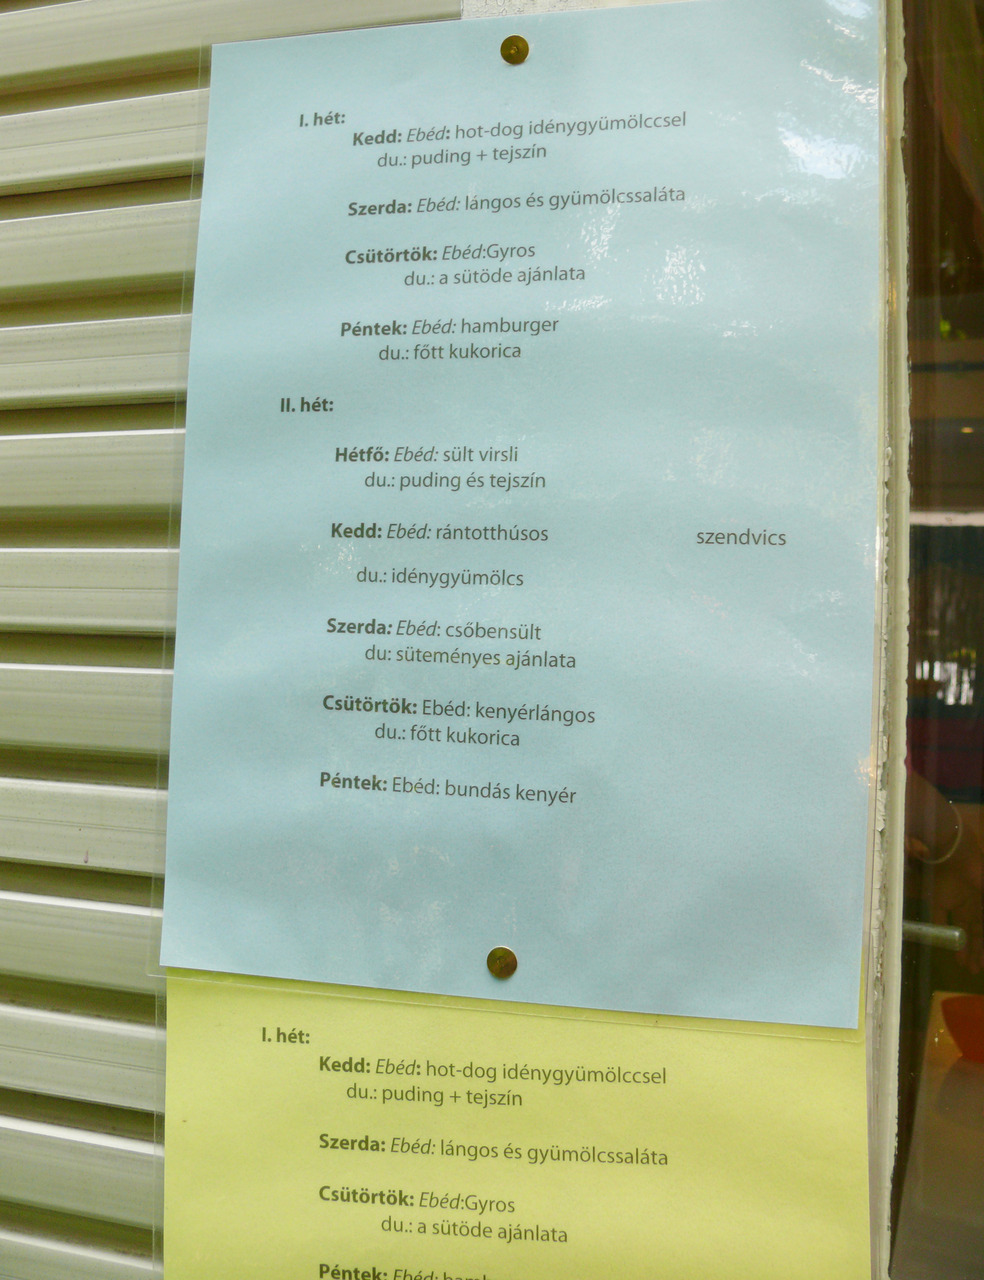 I. hét:
Kedd: Ebéd: hot-dog idénygyümölccsel
du.: puding + tejszín
Szerda: Ebéd: lángos és gyümölcssaláta
Csütörtök: Ebéd:Gyros
du.: a sütöde ajánlata
Péntek: Ebéd: hamburger
du.: főtt kukorica
II. hét:
Hétfő: Ebéd: sült virsli
du.: puding és tejszín
Kedd: Ebéd: rántotthúsos szendvics
du.: idénygyümölcs
Szerda: Ebéd: csőbensült
du: süteményes ajánlata
Csütörtök: Ebéd: kenyérlángos
du.: főtt kukorica
Péntek: Ebéd: bundás kenyér
I. hét:
Kedd: Ebéd: hot-dog idénygyümölccsel
du.: puding + tejszín
Szerda: Ebéd: lángos és gyümölcssaláta
Csütörtök: Ebéd:Gyros
du.: a sütöde ajánlata
Péntek: Ebéd: